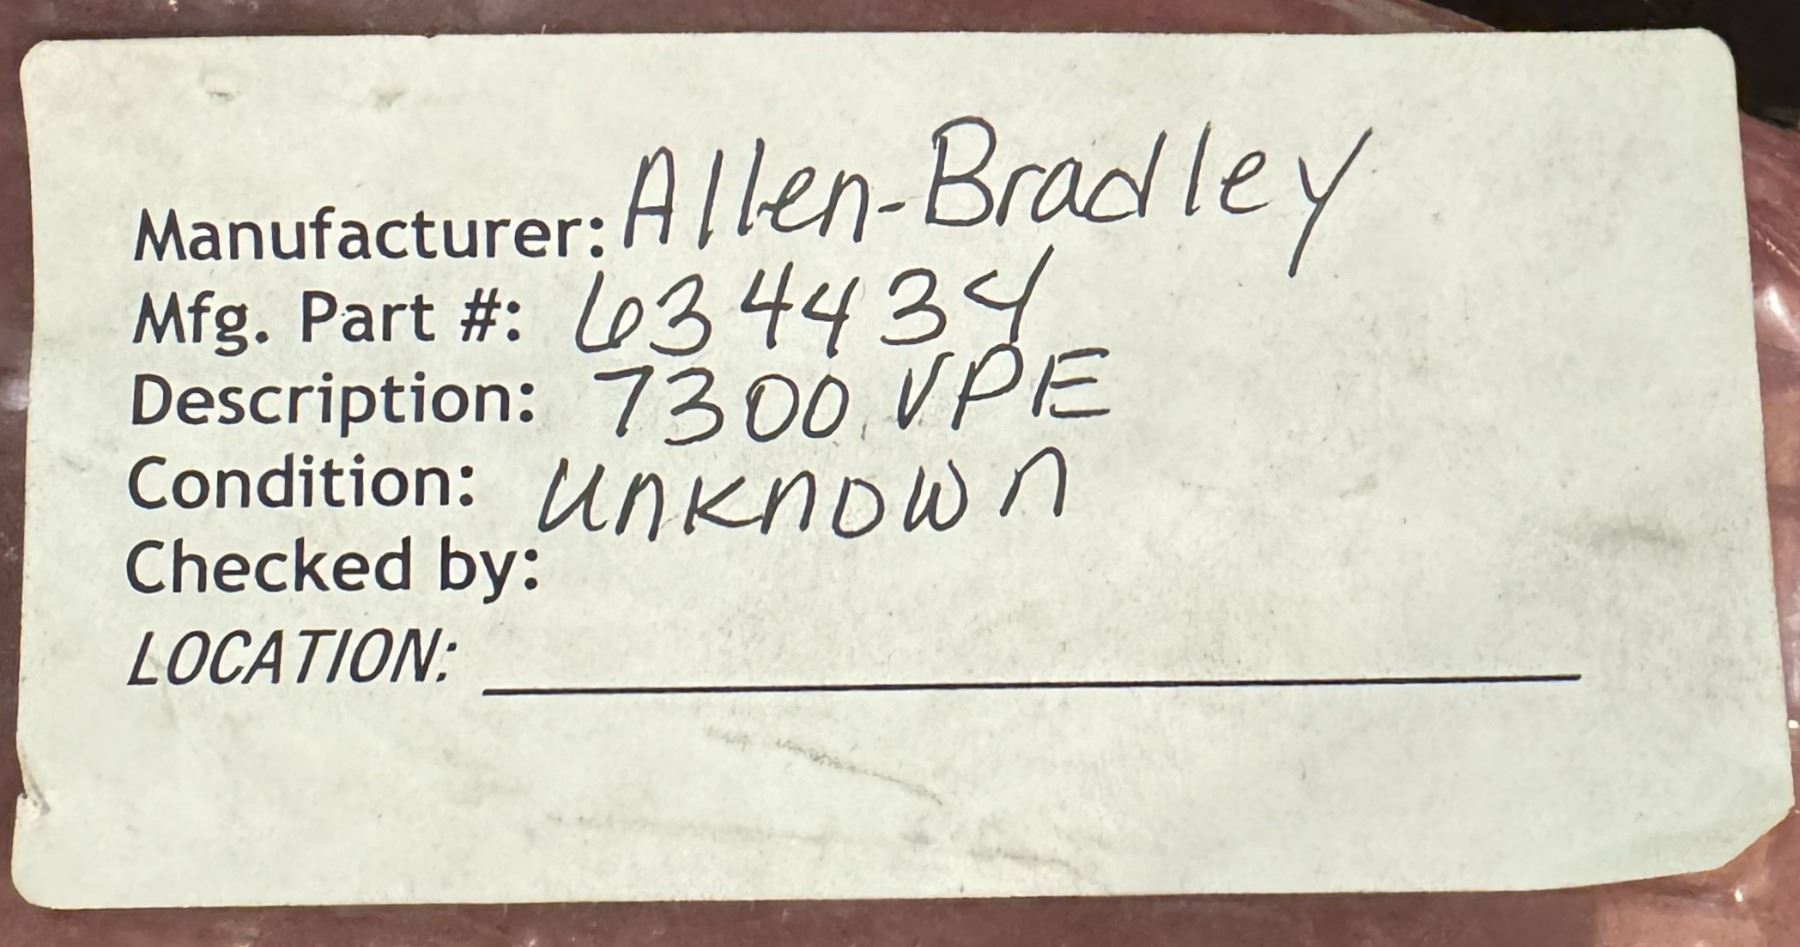 Manufacturer: Allen-Bradley
Mfg. Part #: 634434
Description: 7300 VPE
Condition: Unknown
Checked by:
LOCATION: